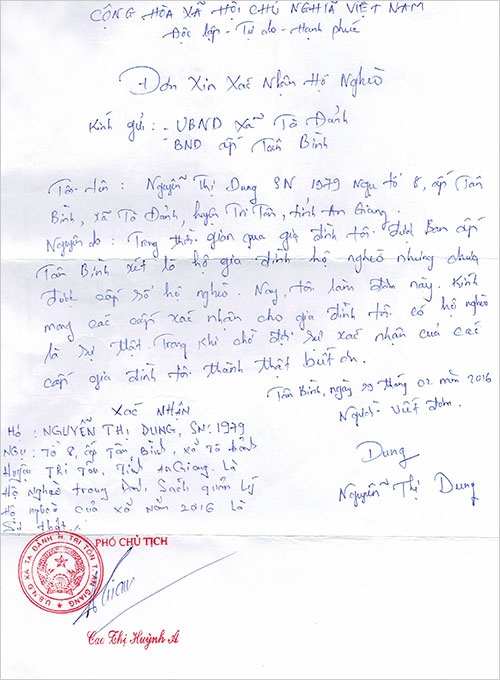 CỘNG HÒA XÃ HỘI CHỦ NGHĨA VIỆT NAM
Độc lập - Tự do - Hạnh phúc
Đơn Xin Xác Nhận Hộ Nghèo
Kính gửi : - UBND Xã Tà Đảnh
BND ấp Tân Bình
Tôi tên : Nguyễn Thị Dung SN 1979 Ngụ tổ 8, ấp Tân
Bình, xã Tà Đảnh, huyện Tri Tôn, tỉnh An Giang.
Nguyên do : Trong thời gian qua gia đình tôi được Ban ấp
Tân Bình xét là hộ gia đình hộ nghèo nhưng chưa
được cấp sổ hộ nghèo. Nay, tôi làm đơn này. Kính
mong các cấp xác nhận cho gia đình tôi có hộ nghèo
là sự thật. Trong khi chờ đợi sự xác nhận của các
cấp gia đình tôi thành thật biết ơn.
Tân Bình, ngày 29 tháng 02 năm 2016
Người viết đơn.
Dung
Nguyễn Thị Dung
XÁC NHẬN
Hộ : NGUYỄN THỊ DUNG, SN: 1979
Ngụ : Tổ 8, ấp Tân Bình, xã Tà Đảnh
Huyện TRI Tôn, Tỉnh An Giang. Là
Hộ nghèo trong danh sách quản lý
Hộ nghèo của xã năm 2016 là
Sự thật ./.
PHÓ CHỦ TỊCH
U.B.N.D XÃ TÀ ĐẢNH H. TRI TÔN T. AN GIANG
Cao Thị Huỳnh Á